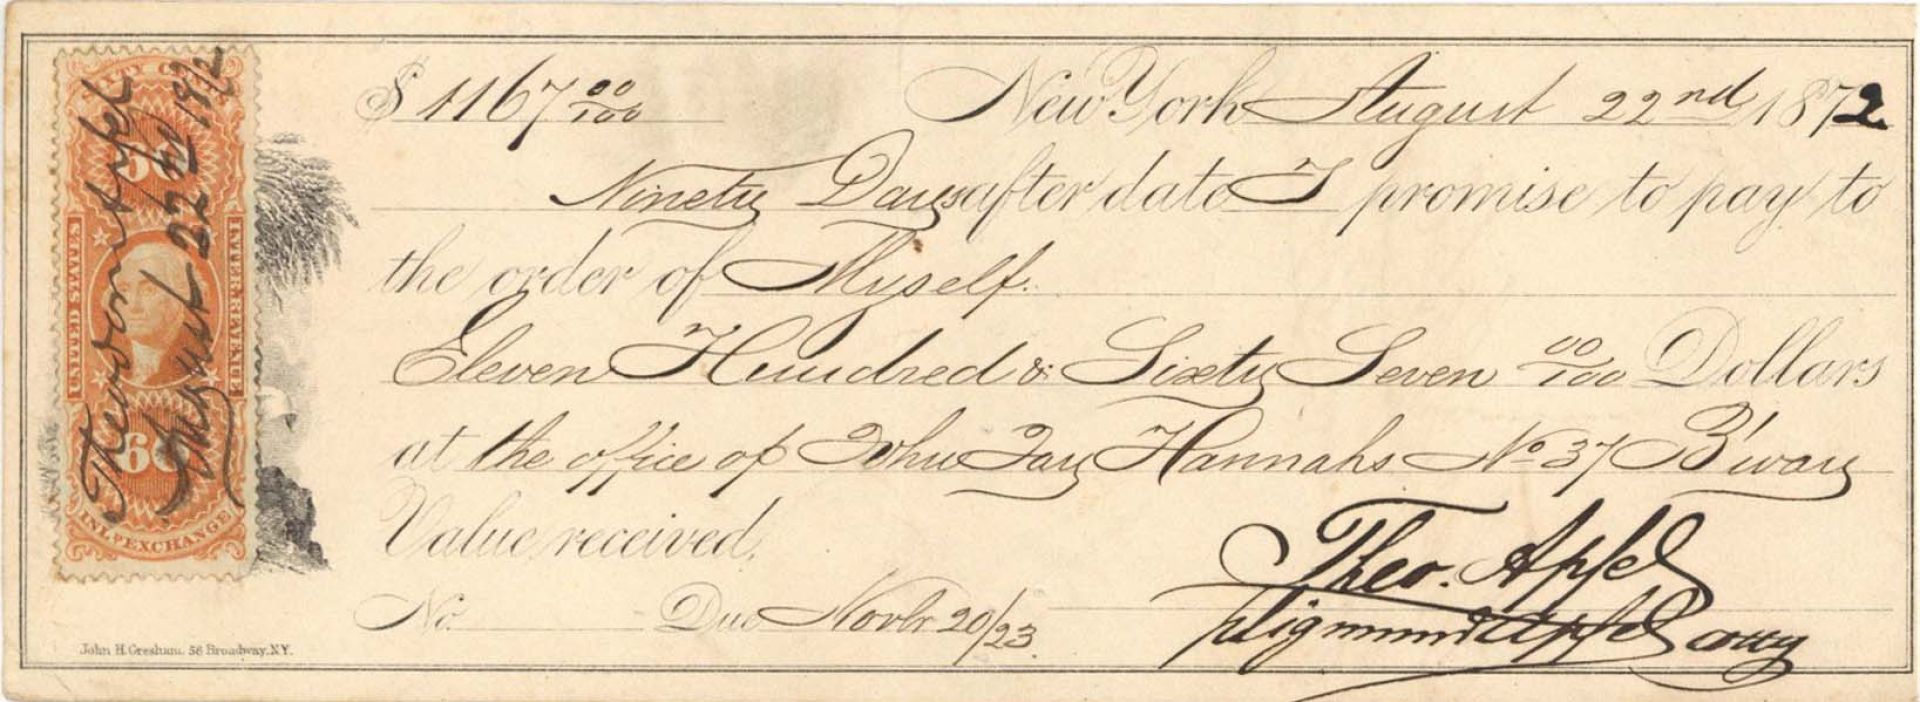 $ 1167 00/100 New York August 22nd 1872
Ninety Days after date I promise to pay to
the order of Myself.
Eleven Hundred & Sixty Seven 00/100 Dollars
at the office of John Jay Hannahs No 37 B'way
Value received,
No. Due Novbr 20/23
Theo. Apfel
p Sigmund Apfel atty
John H. Gresham. 58 Broadway. N.Y.
SIXTY CTS
60
UNITED STATES
INTER. REVENUE
60
INL. EXCHANGE
Theodor Apfel
August 22nd 1872